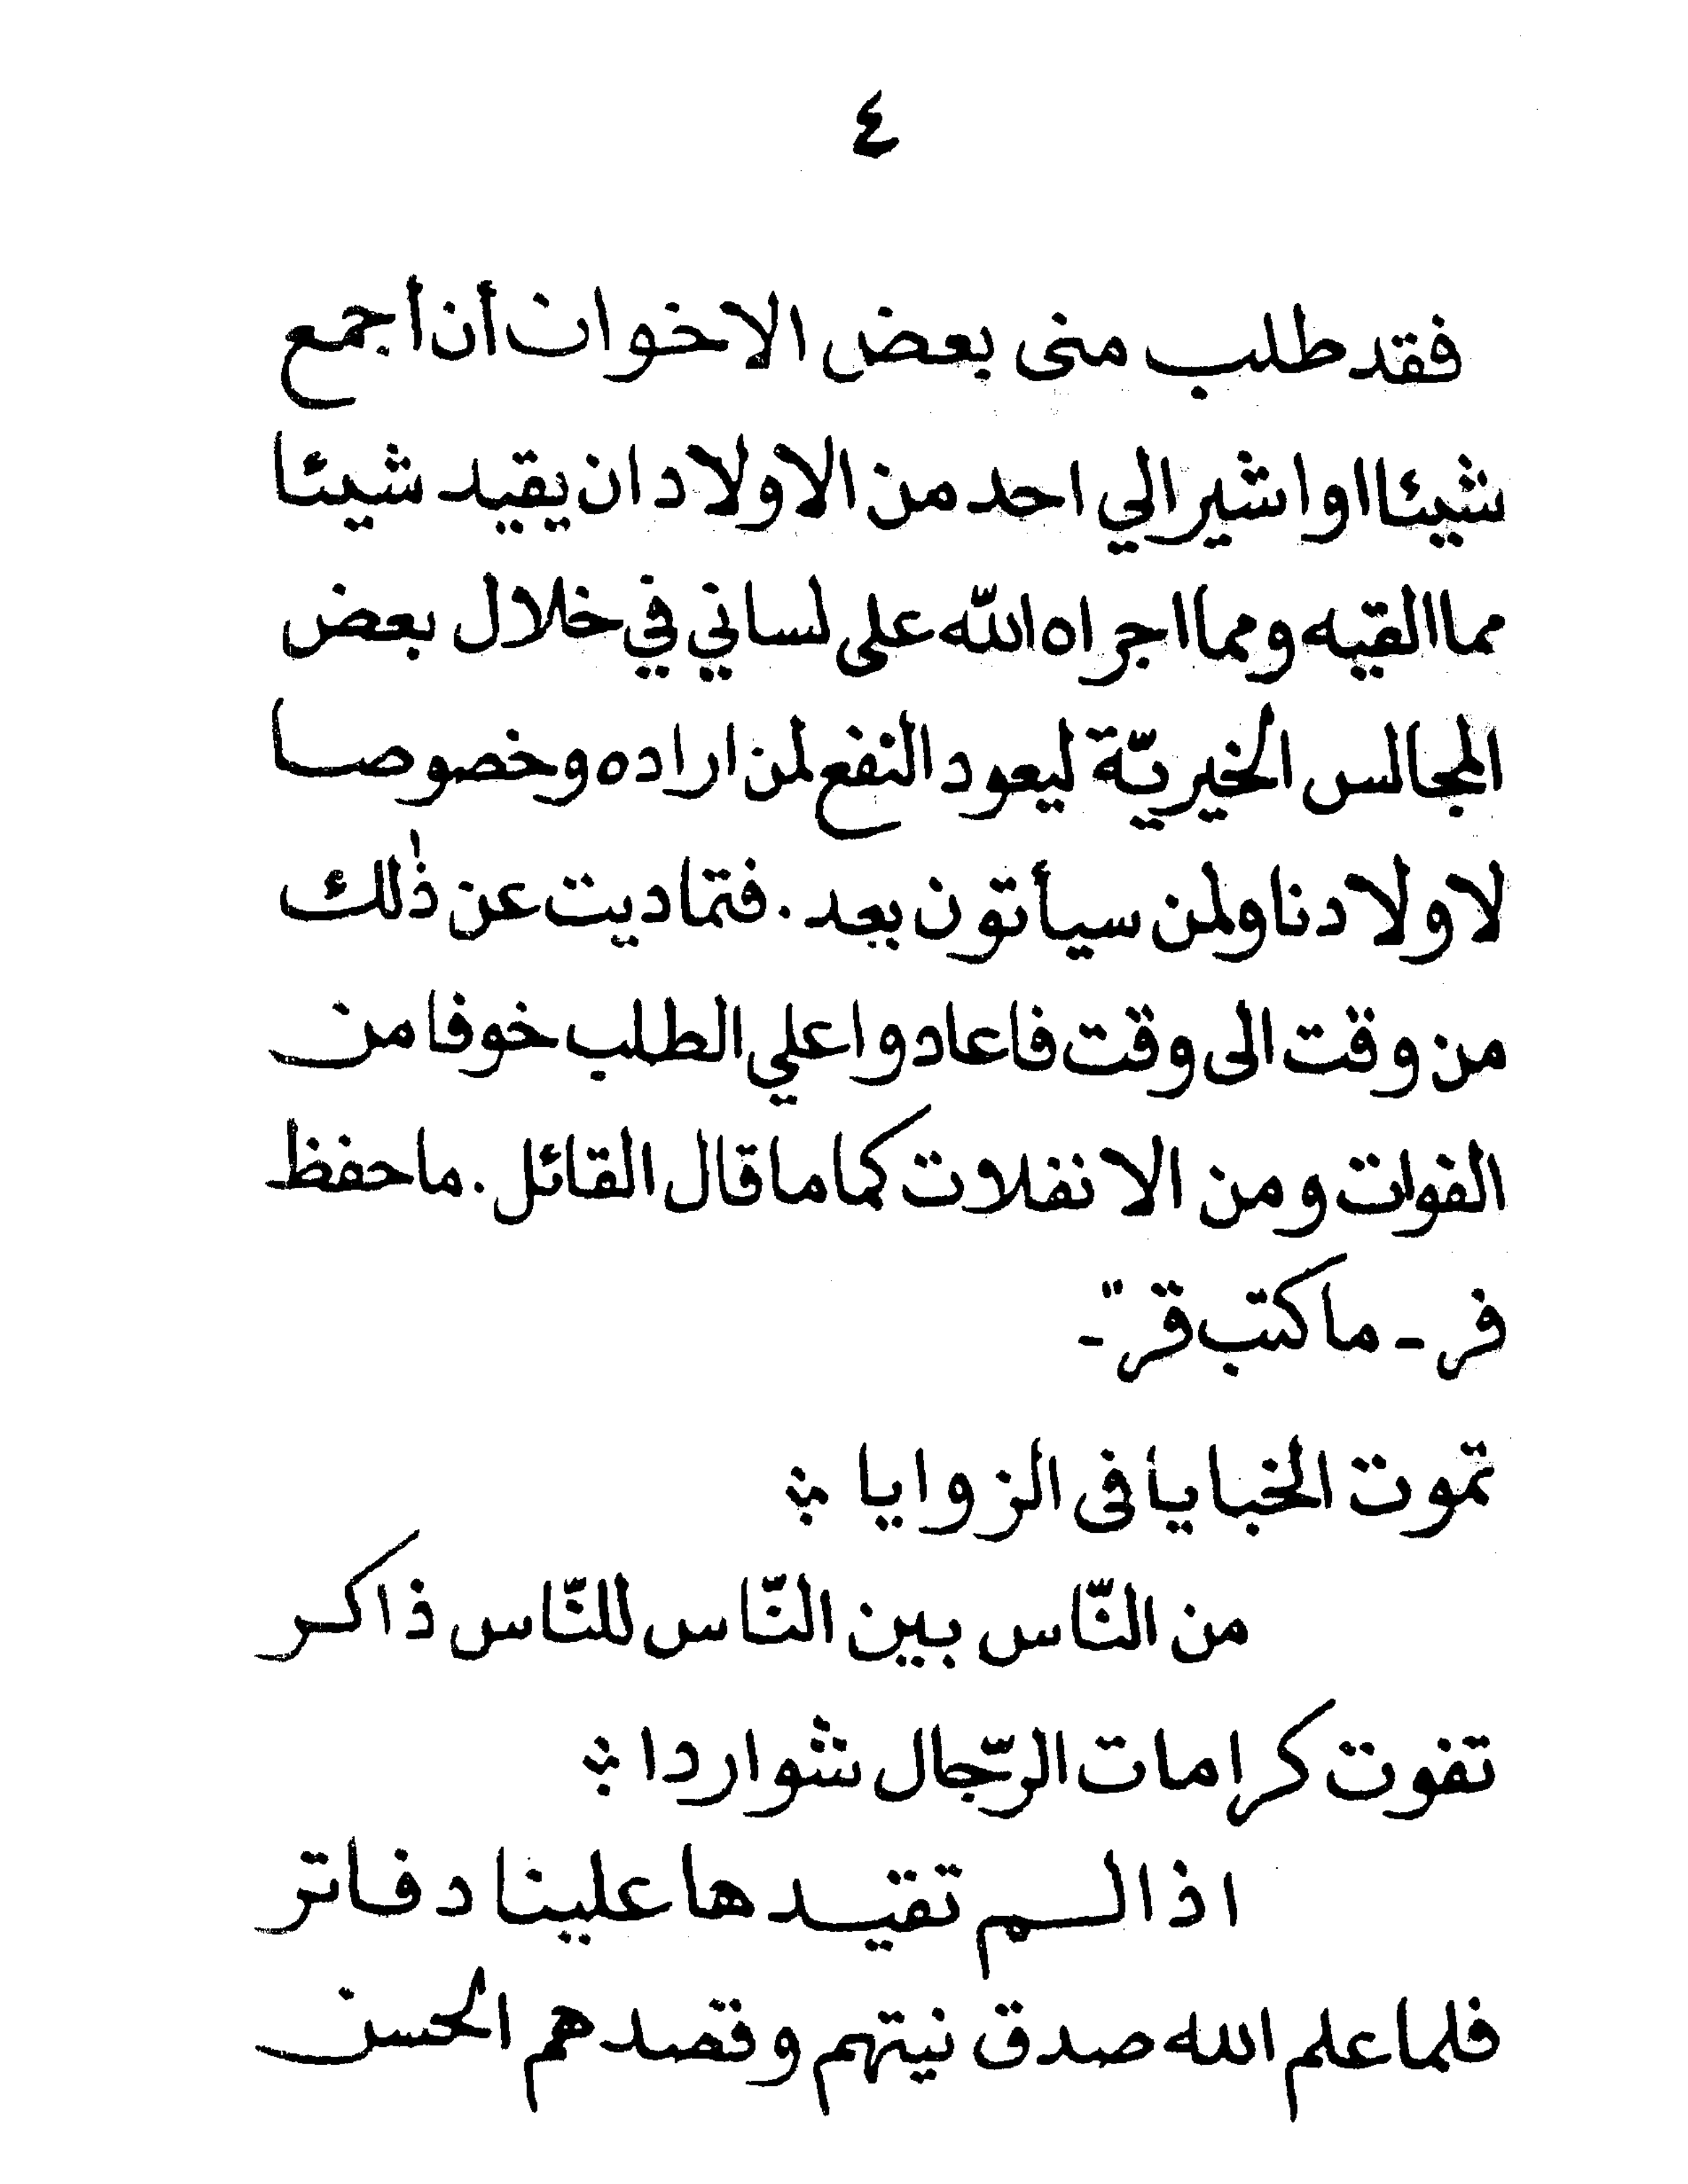 ٤
فقد طلب منى بعض الاخوان أن أجمع
شيئا او اشير الي احد من الاولاد ان يقيد شيئا
مما القيه ومما اجراه اللّه على لساني في خلال بعض
المجالس الخيريّة ليعود النفع لمن اراده وخصوصا
لاولادنا ولمن سيأتون بعد . فتماديت عن ذٰلك
من وقت الى وقت فاعادوا علي الطلب خوفا من
الفوات ومن الانفلات كما ما قال القائل . ما حفظ
فر - ما كتب قرّ -
تموت الخبايا فى الزوايا ؞
من النّاس بين النّاس للنّاس ذاكر
تفوت كرامات الرّجال شواردا ؞
اذا لم تقيدها علينا دفاتر
فلما علم الله صدق نيتهم وقصدهم الحسن